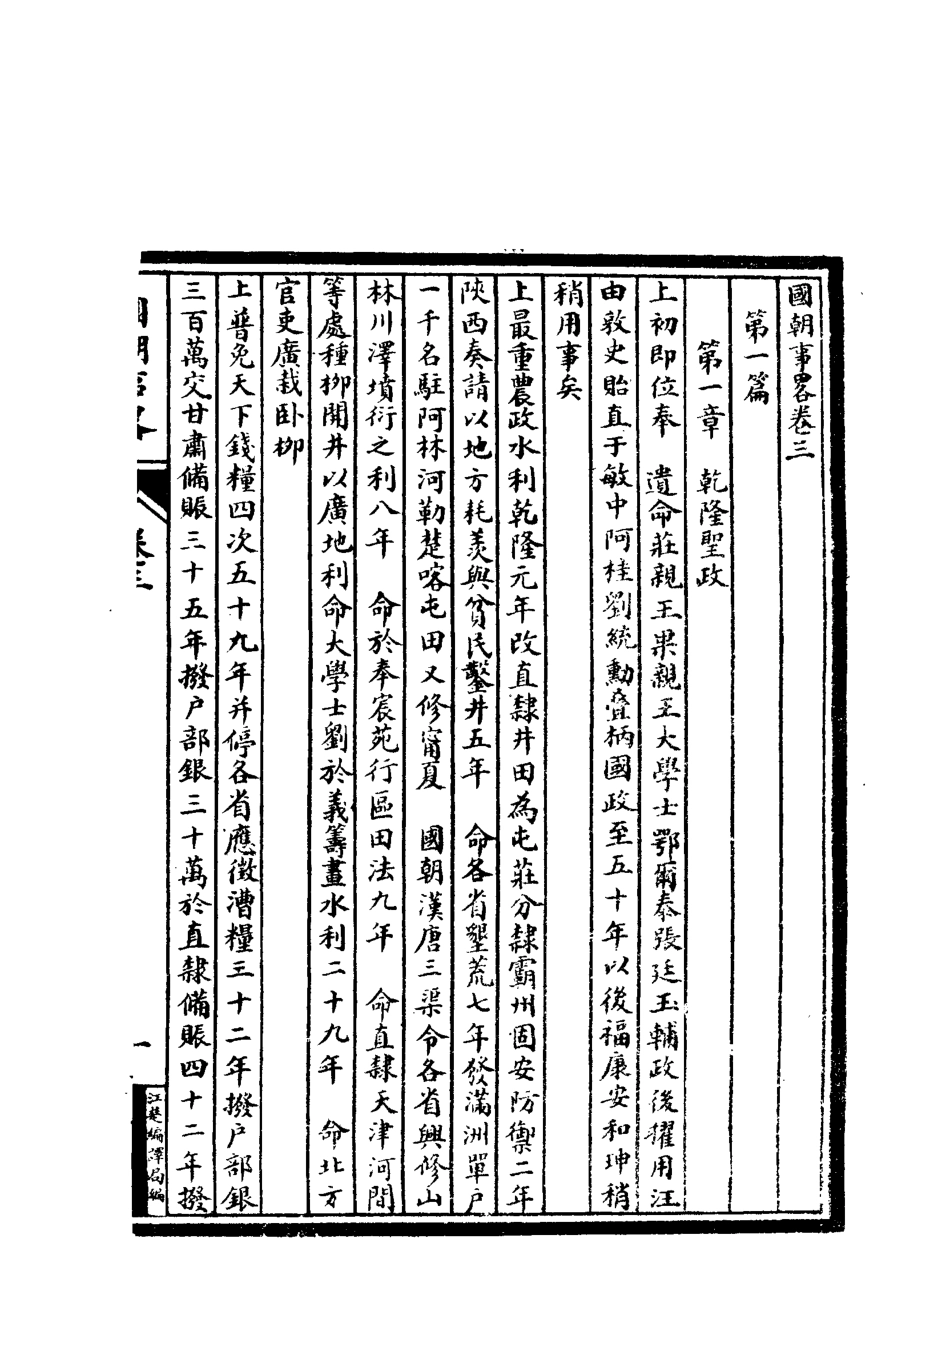 國朝事畧卷三
第一篇
第一章　乾隆聖政
上初即位奉　遺命莊親王果親王大學士鄂爾泰張廷玉輔政後擢用汪
由敦史貽直于敏中阿桂劉統勳疊柄國政至五十年以後福康安和珅稍
稍用事矣
上最重農政水利乾隆元年改直隸井田為屯莊分隸霸州固安防禦二年
陝西奏請以地方耗羡與貧民鑿井五年　命各省墾荒七年發滿洲單戶
一千名駐阿林河勒楚喀屯田又修甯夏　國朝漢唐三渠令各省興修山
林川澤墳衍之利八年　命於奉宸苑行區田法九年　命直隸天津河間
等處種柳開井以廣地利命大學士劉於義籌畫水利二十九年　命北方
官吏廣栽卧柳
上普免天下錢糧四次五十九年并停各省應徵漕糧三十二年撥戶部銀
三百萬交甘肅備賑三十五年撥戶部銀三十萬於直隸備賑四十二年撥
國朝事畧
卷三
一
江楚編譯局編